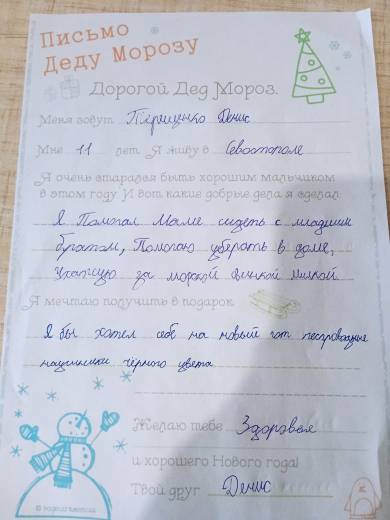 Письмо
Деду Морозу
Дорогой Дед Мороз.
Меня зовут Терещенко Денис
Мне 11 лет. Я живу в Севостополе
Я очень старался быть хорошим мальчиком
в этом году. И вот какие добрые дела я сделал:
Я Помогал Маме сидеть с младшим
братом, Помогаю уберать в доме,
Ухажую за морской свинкой
Я мечтаю получить в подарок
Я бы хотел себе на новый год песпроводные
наушники чёрного цвета
Желаю тебе Здоровья
и хорошего Нового года!
Твой друг Денис